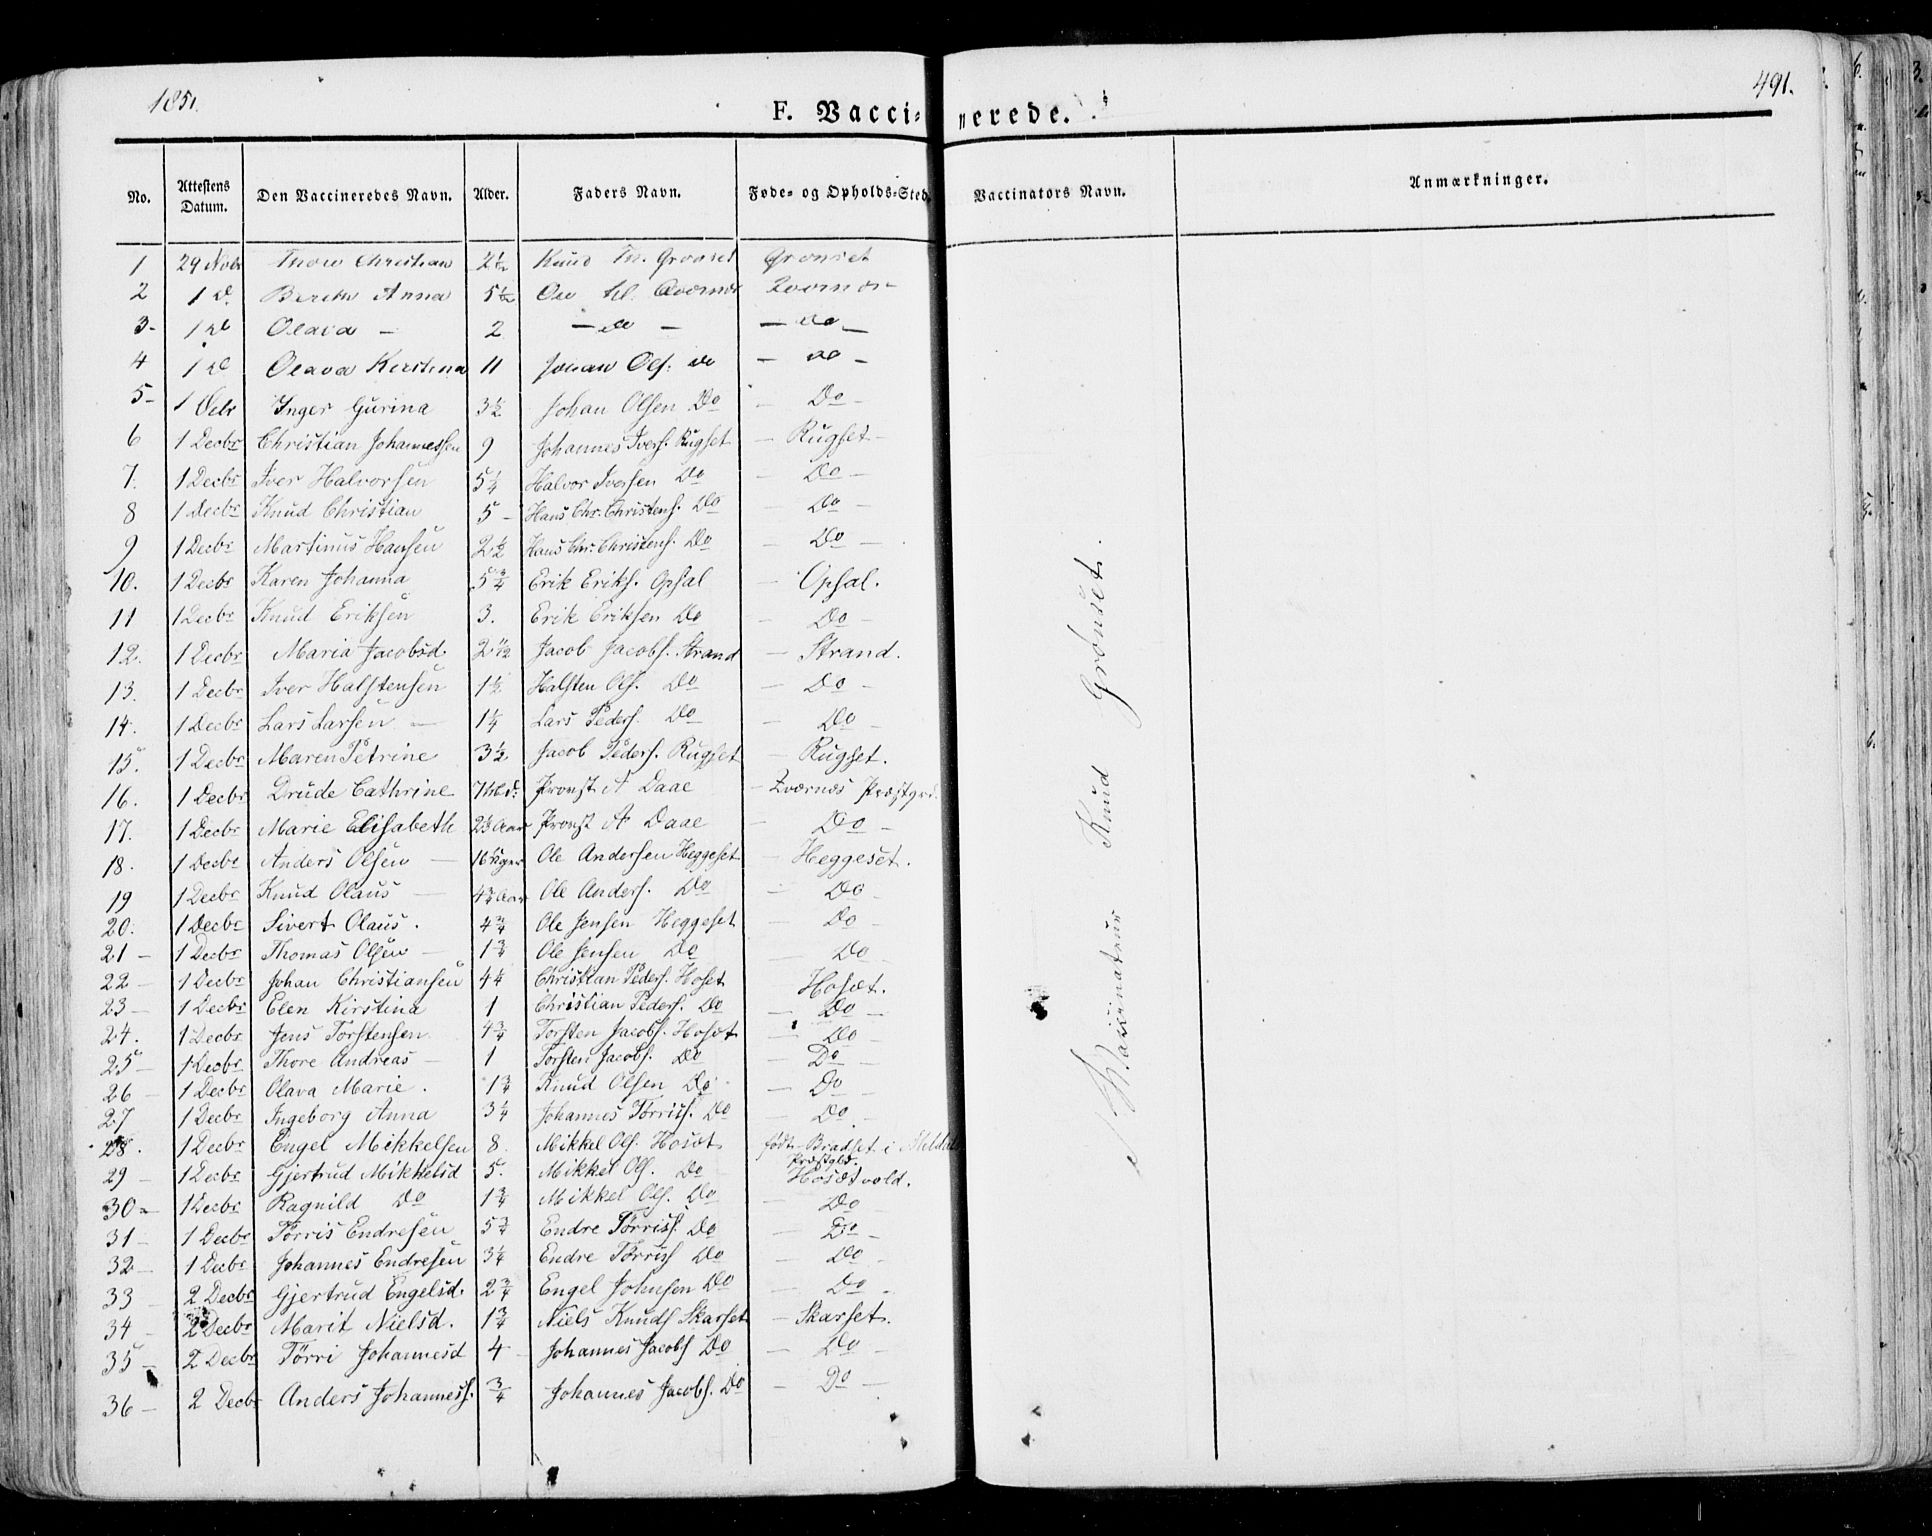 1851.
F. Vaccinerede.
491.
No. Attestens Datum. Den Vaccineredes Navn. Alder. Faders Navn. Føde- og Opholds-Sted. Vaccinators Navn. Anmærkninger.
1 29 Novbr Thore Christian 2 1/2 Knud Grønset Grønset
2 1 D Anna 5 1/2
3- 1 Olava - 2 - do - - do -
4 1 Olava Kirstina 11 Johan Ols: do - do -
5- 1 Inger Gurina 3 1/2 Johan Olsen Do - Do -
6 1 Decbr Christian Johannessen 9 Johannes Ivers. Rugset - Rugset -
7. 1 Decbr Iver Halvorsen 5 1/4 Halvor Iversen Do - Do -
8 1 Decbr Knud Christian 5 - Hans Chr. Christens. Do - Do -
9 1 Decbr Martinus Hansen 2 1/2 Hans Chr. Christens. Do - Do -
10. 1 Decbr Karen Johanna 5 3/4 Erik Eriks. Opsal - Opsal.
11 1 Decbr Knud Eriksen 3. Erik Eriksen Do - Do -
12. 1 Decbr Maria Jacobsd. 2 Jacob Jacobs. Strand - Strand.
13. 1 Decbr Iver Halstensen 1 1/2 Halsten Ols. Do - Do -
14. 1 Decbr Lars Larsen - 1 1/4 Lars Peders. Do - Do -
15. 1 Decbr Maren Petrine 3 1/2 Jacob Peders. Rugset - Rugset.
16. 1 Decbr Drude Cathrine 7 Md: Provst A Daae - Qværnæs Præstgrd.
17. 1 Decbr Marie Elisabeth 2 1/2 Aar Provst A Daae - Do -
18. 1 Decbr Anders Olsen - 16 Uger Ole Andersen Heggeset - Heggeset.
19 1 Decbr Knud Olaus - 4 3/4 Aar Ole Anders. Do - Do -
20. 1 Decbr Sivert Olaus. 4 3/4 Ole Jensen Heggeset - Do -
21 - 1 Decbr Thomas Olsen - 1 3/4 Ole Jensen Do - Do
22 - 1 Decbr Johan Christiansen 4 1/4 Christian Peders. Hoset Hosæt.
23 - 1 Decbr Elen Kirstina 1 Christian Peders. Do - Do -
24. 1 Decbr Jens Torstensen 4 3/4 Torsten Jacobs. Hosæt - Do -
25 - 1 Decbr Thore Andreas - 1 Torsten Jacobs. Do - Do -
26 - 1 Decbr Olava Marie. 1 3/4 Knud Olsen Do - Do
27 1 Decbr Ingeborg Anna 3 1/4 Johannes Tørris. Do - Do -
28. 1 Decbr Engel Mikkelsen 8. Mikkel Ols. Hosæt født Bradset i Meldal Præstgld.
29 - 1 Decbr Gjertrud Mikkelsd 5. Mikkel Ols. Do Hosætvold.
30 - 1 Decbr Ragnild Do 1 3/4 Mikkel Ols. Do - Do
31 - 1 Decbr Tørris Endresen 5 3/4 Endre Tørriss. Do - Do -
32 - 1 Decbr Johannes Endresen 3 1/4 Endre Tørriss Do - Do
33 - 2 Decbr Gjertrud Engelsd. 2 3/4 Engel Johnsen Do - Do -
34 - 2 Decbr Marit Nielsd. 1 3/4 Niels Knuds Skarset - Skarset.
35 - 2 Decbr Tørri Johannesd 4 - Johannes Jacobs Do - Do -
36 - 2 Decbr Anders Johanness. 3/4 Johannes Jacobs. Do - Do -
Vaccinateur Knud Grønset.